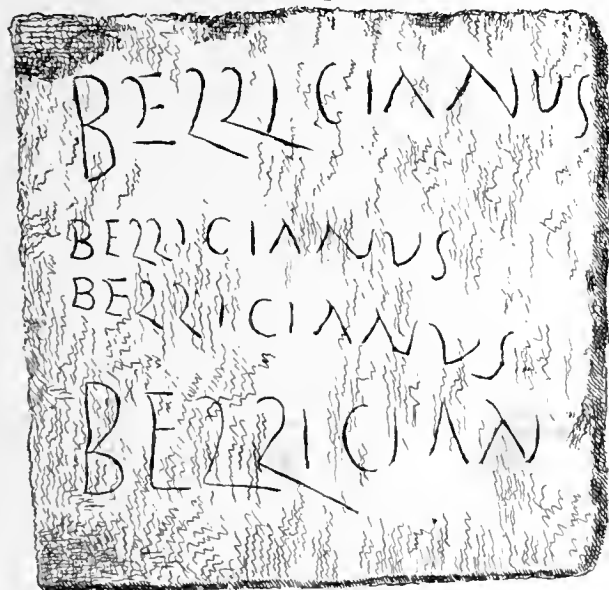 BEZZICIANUS
BEZZICIANUS
BEZZICIANUS
BEZZICIAN